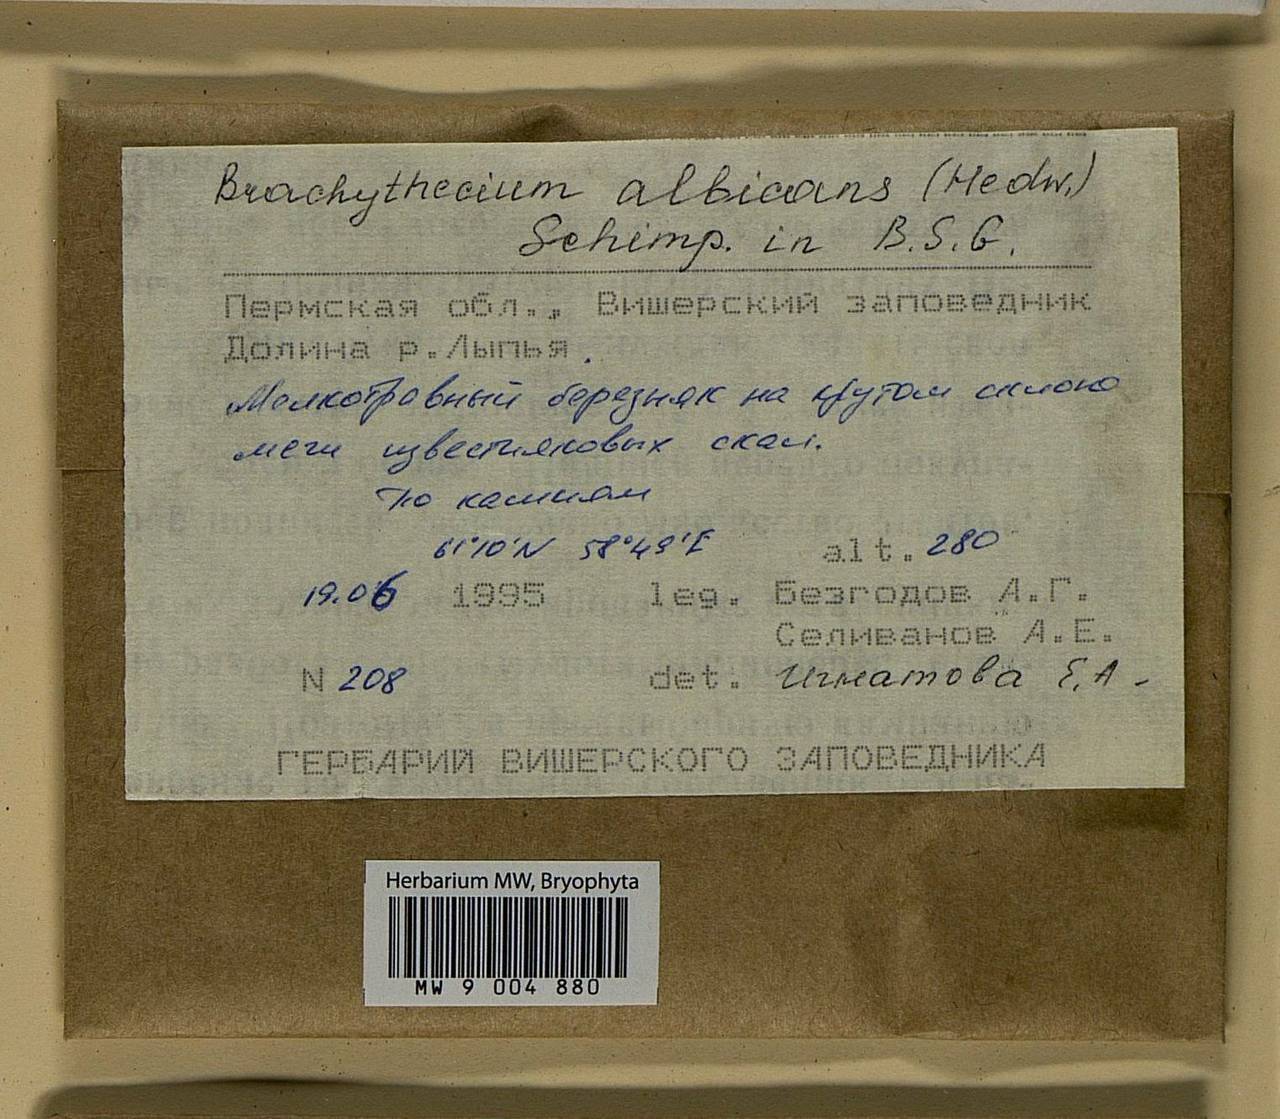 Brachythecium albicans (Hedw.)
Schimp. in B.S.G.
Пермская обл., Вишерский заповедник
Долина р.Лыпья.
Мелкотравный березняк на крутом склоне
меги известняковых скал.
По камням
61°10'N 58°49'E alt. 280
19.06 1995 leg. Безгодов А.Г.
Селиванов А.Е.
N 208 det. Игнатова Е.А.
ГЕРБАРИЙ ВИШЕРСКОГО ЗАПОВЕДНИКА
Herbarium MW, Bryophyta
MW 9 004 880